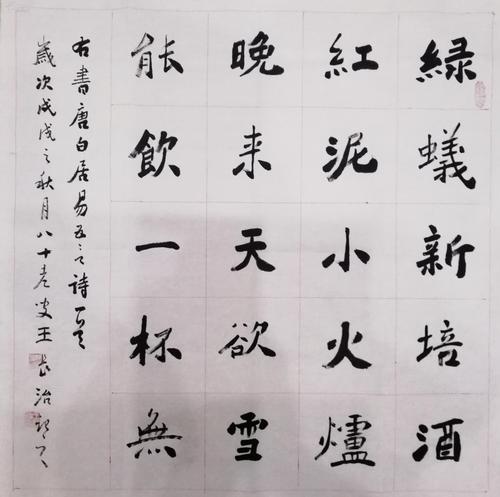 綠蟻新培酒
紅泥小火爐
晚来天欲雪
能飲一杯無
右書唐白居易五言詩一首
歲次戊戌之秋月八十老叟王長治